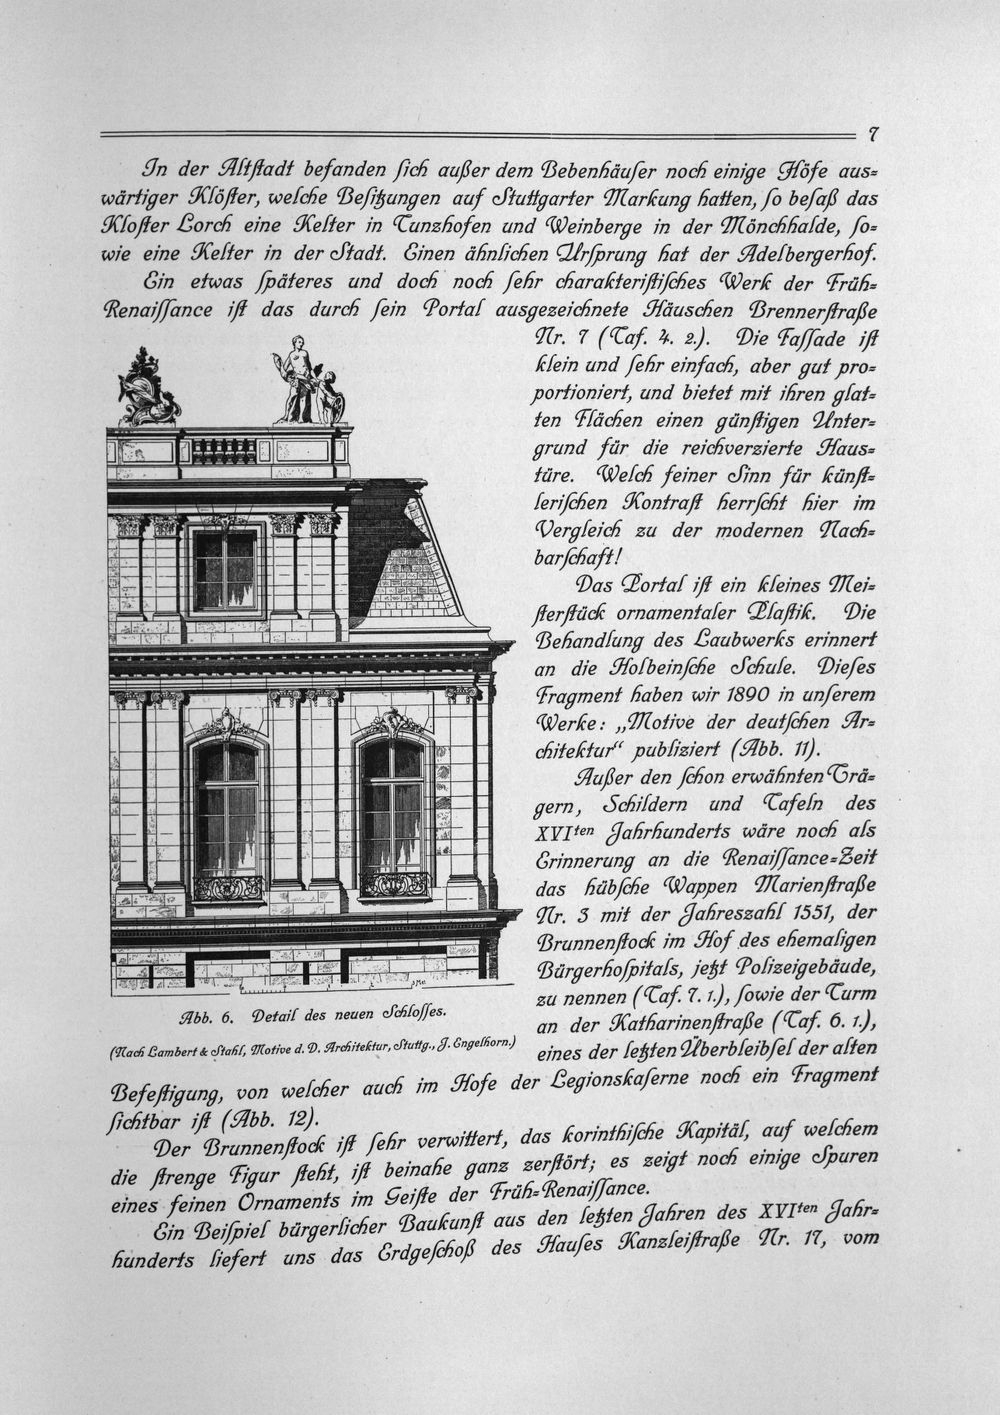 7
In der Altſtadt befanden ſich außer dem Bebenhäuſer noch einige Höfe aus=
wärtiger Klöſter, welche Beſitzungen auf Stuttgarter Markung hatten, ſo beſaß das
Kloſter Lorch eine Kelter in Tunzhofen und Weinberge in der Mönchhalde, ſo=
wie eine Kelter in der Stadt. Einen ähnlichen Urſprung hat der Adelbergerhof.
Ein etwas ſpäteres und doch noch ſehr charakteriſtiſches Werk der Früh=
Renaiſſance iſt das durch ſein Portal ausgezeichnete Häuschen Brennerſtraße
Nr. 7 (Taf. 4. 2.). Die Faſſade iſt
klein und ſehr einfach, aber gut pro=
portioniert, und bietet mit ihren glat=
ten Flächen einen günſtigen Unter=
grund für die reichverzierte Haus=
türe. Welch feiner Sinn für künſt=
leriſchen Kontraſt herrſcht hier im
Vergleich zu der modernen Nach=
barſchaft!
Das Portal iſt ein kleines Mei=
ſterſtück ornamentaler Plaſtik. Die
Behandlung des Laubwerks erinnert
an die Holbeinſche Schule. Dieſes
Fragment haben wir 1890 in unſerem
Werke: „Motive der deutſchen Ar=
chitektur“ publiziert (Abb. 11).
Außer den ſchon erwähnten Trä=
gern, Schildern und Tafeln des
XVIten Jahrhunderts wäre noch als
Erinnerung an die Renaiſſance=Zeit
das hübſche Wappen Marienſtraße
Nr. 3 mit der Jahreszahl 1551, der
Brunnenſtock im Hof des ehemaligen
Bürgerhoſpitals, jetzt Polizeigebäude,
zu nennen (Taf. 7. 1.), ſowie der Turm
an der Katharinenſtraße (Taf. 6. 1.),
eines der letzten Überbleibſel der alten
Abb. 6. Detail des neuen Schloſſes.
(Nach Lambert & Stahl, Motive d. D. Architektur, Stuttg., J. Engelhorn.)
Befeſtigung, von welcher auch im Hofe der Legionskaſerne noch ein Fragment
ſichtbar iſt (Abb. 12).
Der Brunnenſtock iſt ſehr verwittert, das korinthiſche Kapitäl, auf welchem
die ſtrenge Figur ſteht, iſt beinahe ganz zerſtört; es zeigt noch einige Spuren
eines feinen Ornaments im Geiſte der Früh=Renaiſſance.
Ein Beiſpiel bürgerlicher Baukunſt aus den letzten Jahren des XVIten Jahr=
hunderts liefert uns das Erdgeſchoß des Hauſes Kanzleiſtraße Nr. 17, vom